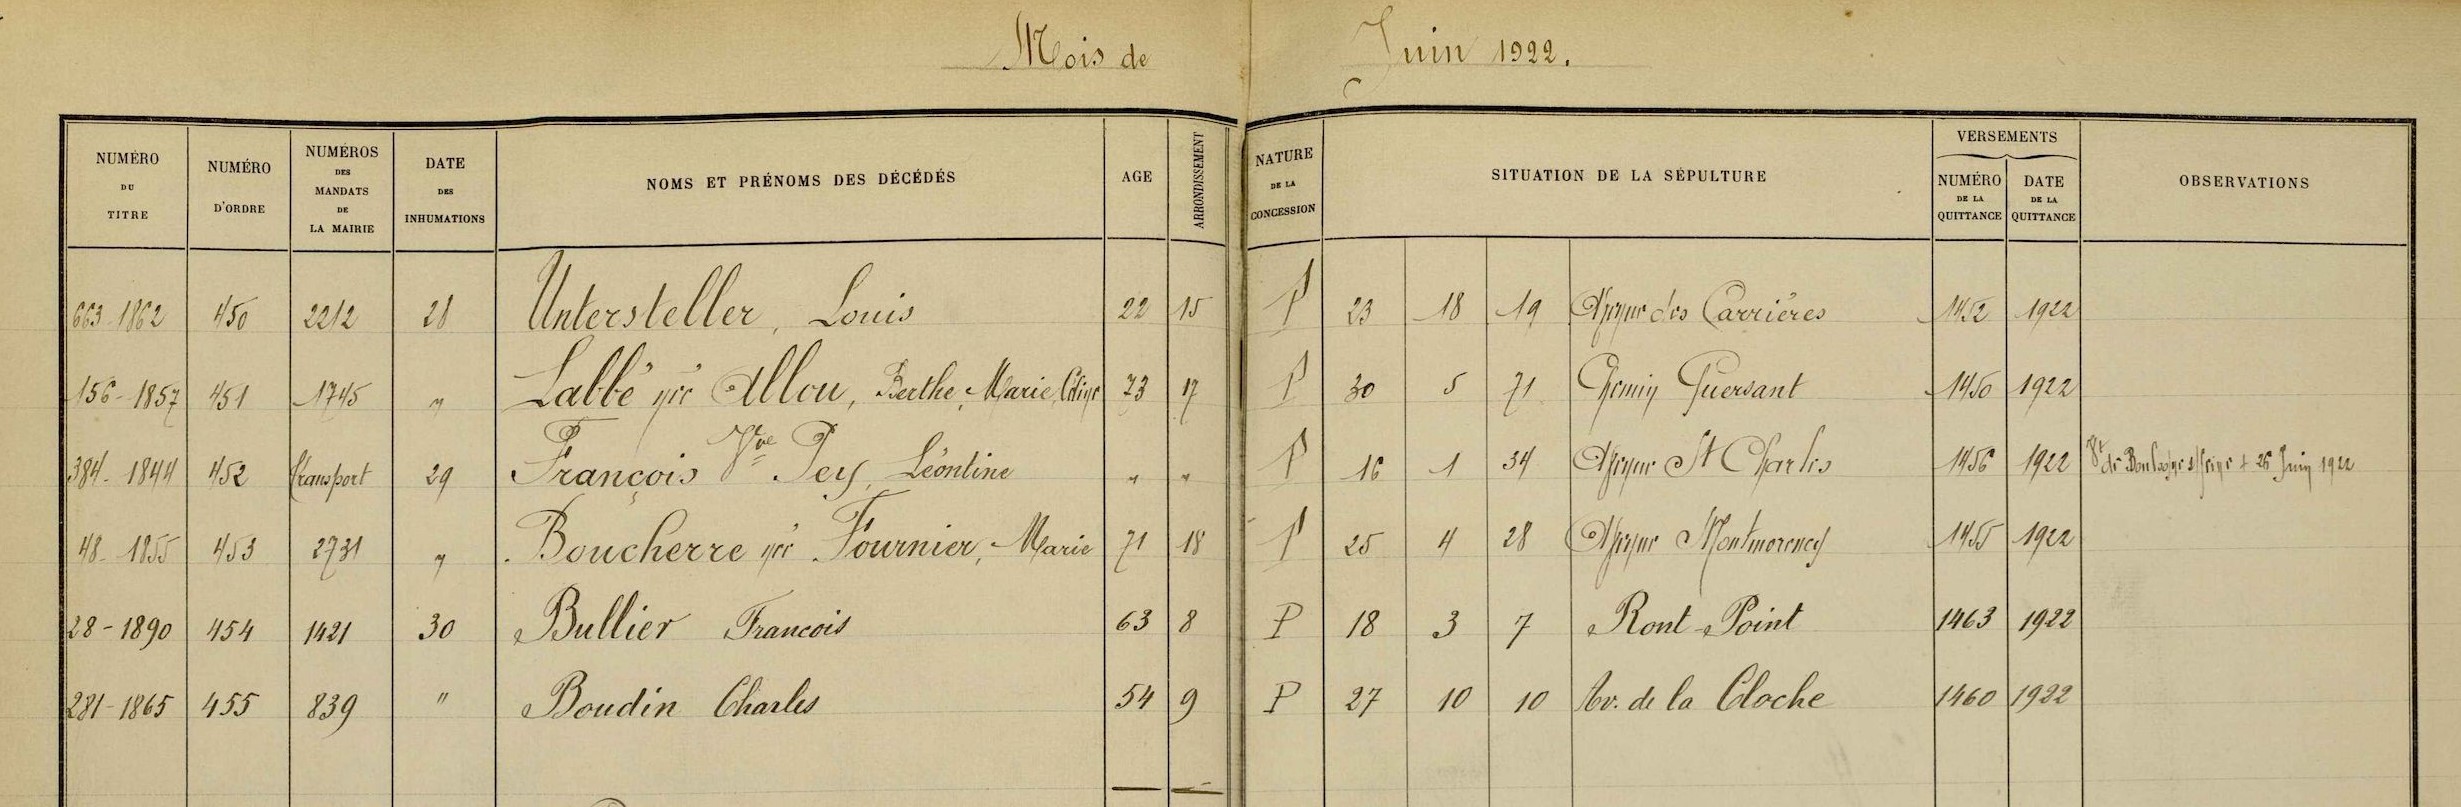 Mois de Juin 1922.
NUMÉRO DU TITRE NUMÉRO D'ORDRE NUMÉROS DES MANDATS DE LA MAIRIE DATE DES INHUMATIONS NOMS ET PRÉNOMS DES DÉCÉDÉS AGE ARRONDISSEMENT NATURE DE LA CONCESSION SITUATION DE LA SÉPULTURE VERSEMENTS NUMÉRO DE LA QUITTANCE DATE DE LA QUITTANCE OBSERVATIONS
663-1862 450 2212 28 Untersteller, Louis 22 15 P 23 18 19 Avenue des Carrières 1452 1922
156-1857 451 1745 " Labbé née Allou, Berthe, Marie, Céline 73 17 P 30 5 71 Chemin Guersant 1450 1922
384-1844 452 Transport 29 François Vve Pey, Léontine " " P 16 1 34 Avenue St Charles 1456 1922 Vt de Boulogne s/seine + 26 Juin 1922
48-1855 453 2731 " Boucherre née Fournier, Marie 71 18 P 25 4 28 Avenue Montmorency 1455 1922
28-1890 454 1421 30 Bullier Francois 63 8 P 18 3 7 Ront-Point 1463 1922
281-1865 455 839 " Boudin Charles 54 9 P 27 10 10 Av. de la Cloche 1460 1922